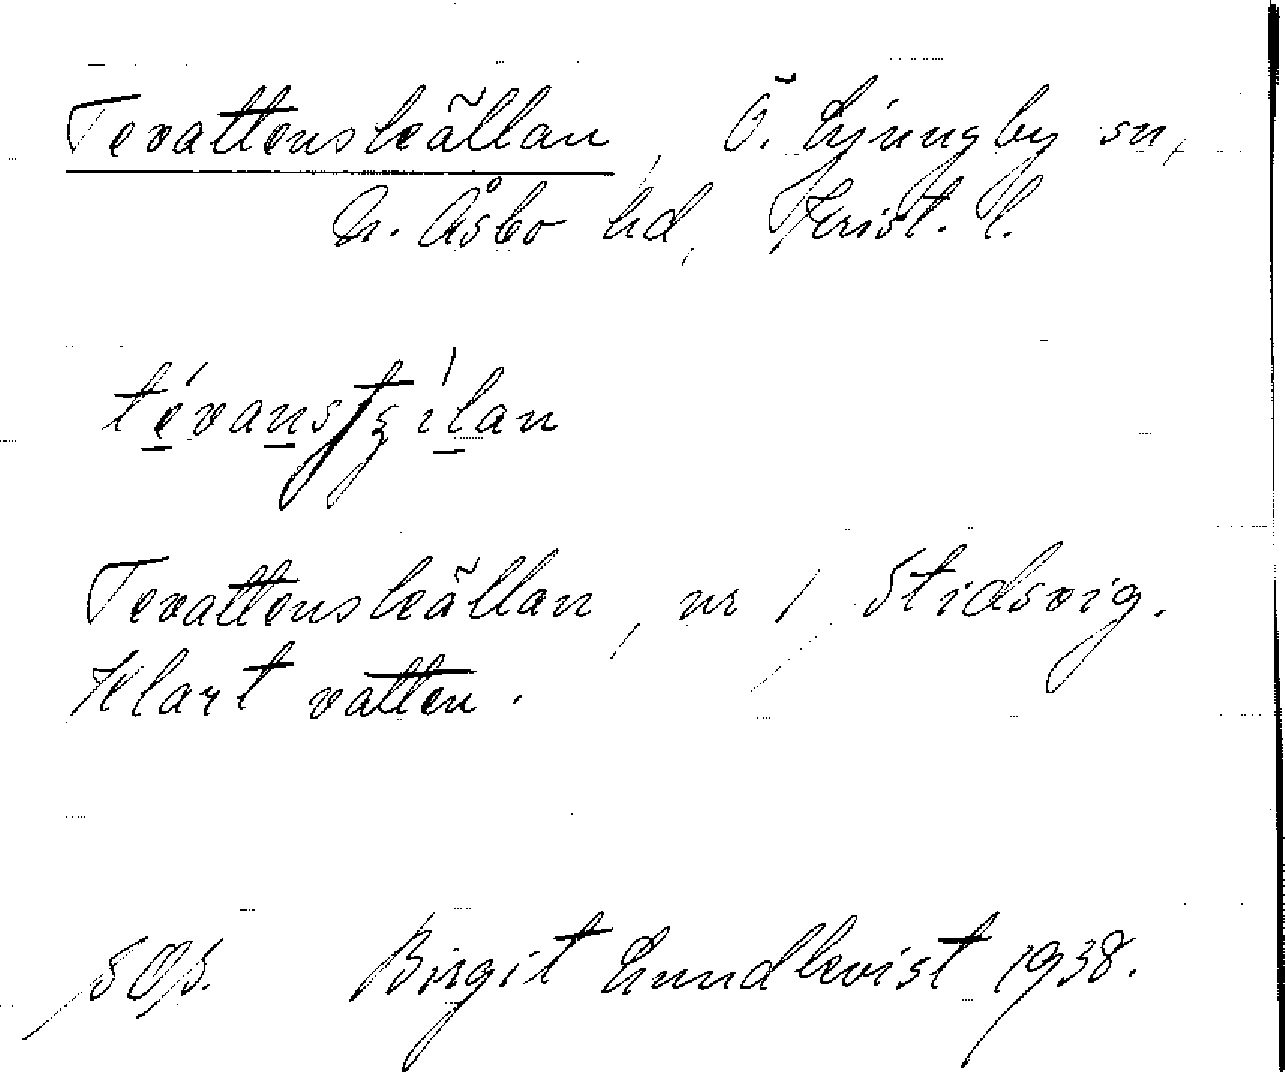 Tevattenskällan, Ö. Ljungby sn,
N. Åsbo hd, Krist. l.
Tevattenskällan, nr 1 Stidsvig.
Klart vatten.
Birgit Lundkvist 1938.